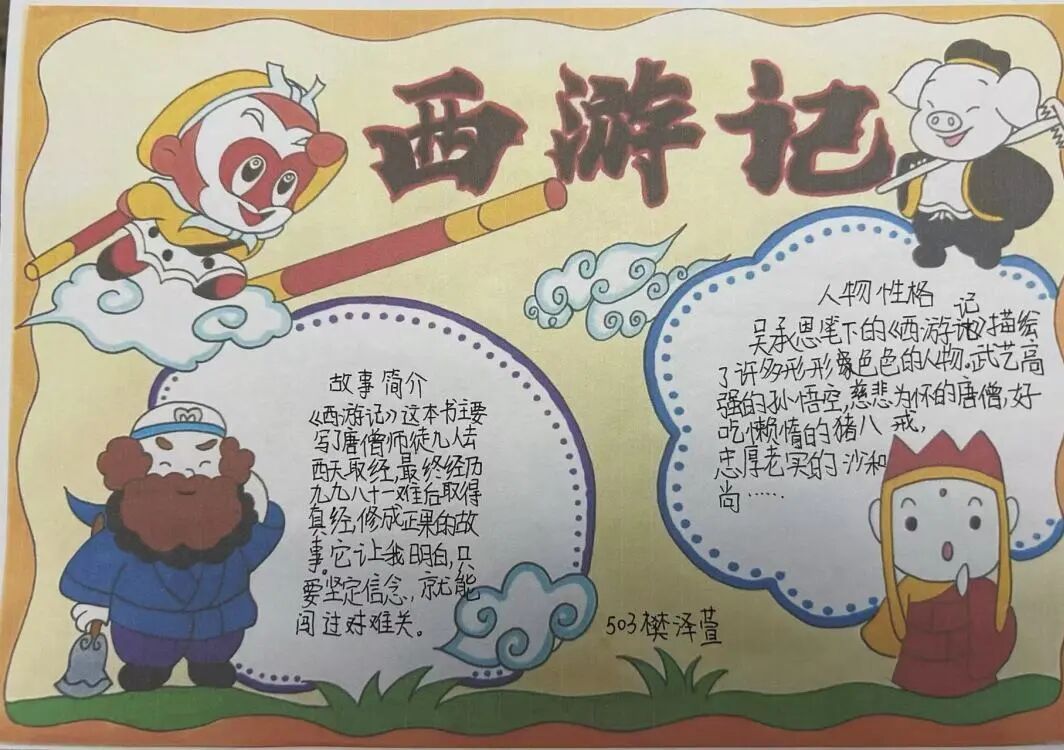 西游记
故事简介
《西游记》这本书主要
写了唐僧师徒几人去
西天取经，最终经历
九九八十一难后取得
真经，修成正果的故
事。它让我明白，只
要坚定信念，就能
闯过好难关。
人物性格
吴承思笔下的《西游记》描绘
了许多形形象色色的人物。武艺高
强的孙悟空，慈悲为怀的唐僧，好
吃懒惰的猪八戒，
忠厚老实的沙和
尚……
503樊泽萱